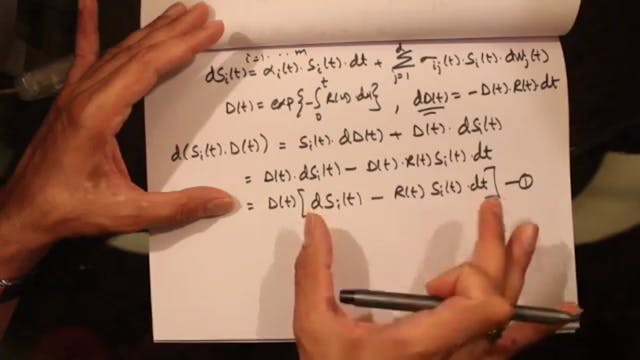 i=1, ... m
dSᵢ(t) = αᵢ(t)·Sᵢ(t)·dt + Σ_{j=1}^{d} σᵢⱼ(t)·Sᵢ(t)·dWⱼ(t)
D(t) = exp{-∫₀ᵗ R(u) du}, dD(t) = -D(t)·R(t)·dt
d(Sᵢ(t)·D(t)) = Sᵢ(t)·dD(t) + D(t)·dSᵢ(t)
= D(t)·dSᵢ(t) - D(t)·R(t)Sᵢ(t)·dt
= D(t)[dSᵢ(t) - R(t)Sᵢ(t)·dt] -①